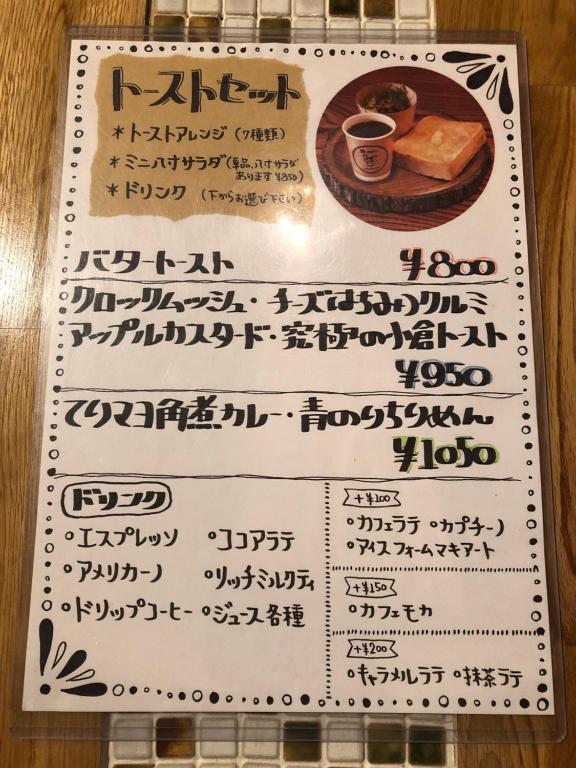 トーストセット
＊トーストアレンジ（7種類）
＊ミニ八寸サラダ（単品、八寸サラダ
あります¥850）
＊ドリンク（下からお選び下さい）
バタートースト ¥800
クロックムッシュ・チーズはちみつクルミ
アップルカスタード・究極の小倉トースト
¥950
てりマヨ角煮カレー・青のりちりめん
¥1050
ドリンク
○エスプレッソ ○ココアラテ
○アメリカーノ ○リッチミルクティ
○ドリップコーヒー ○ジュース各種
+¥100
○カフェラテ ○カプチーノ
○アイスフォームマキアート
+¥150
○カフェモカ
+¥200
○キャラメルラテ ○抹茶ラテ